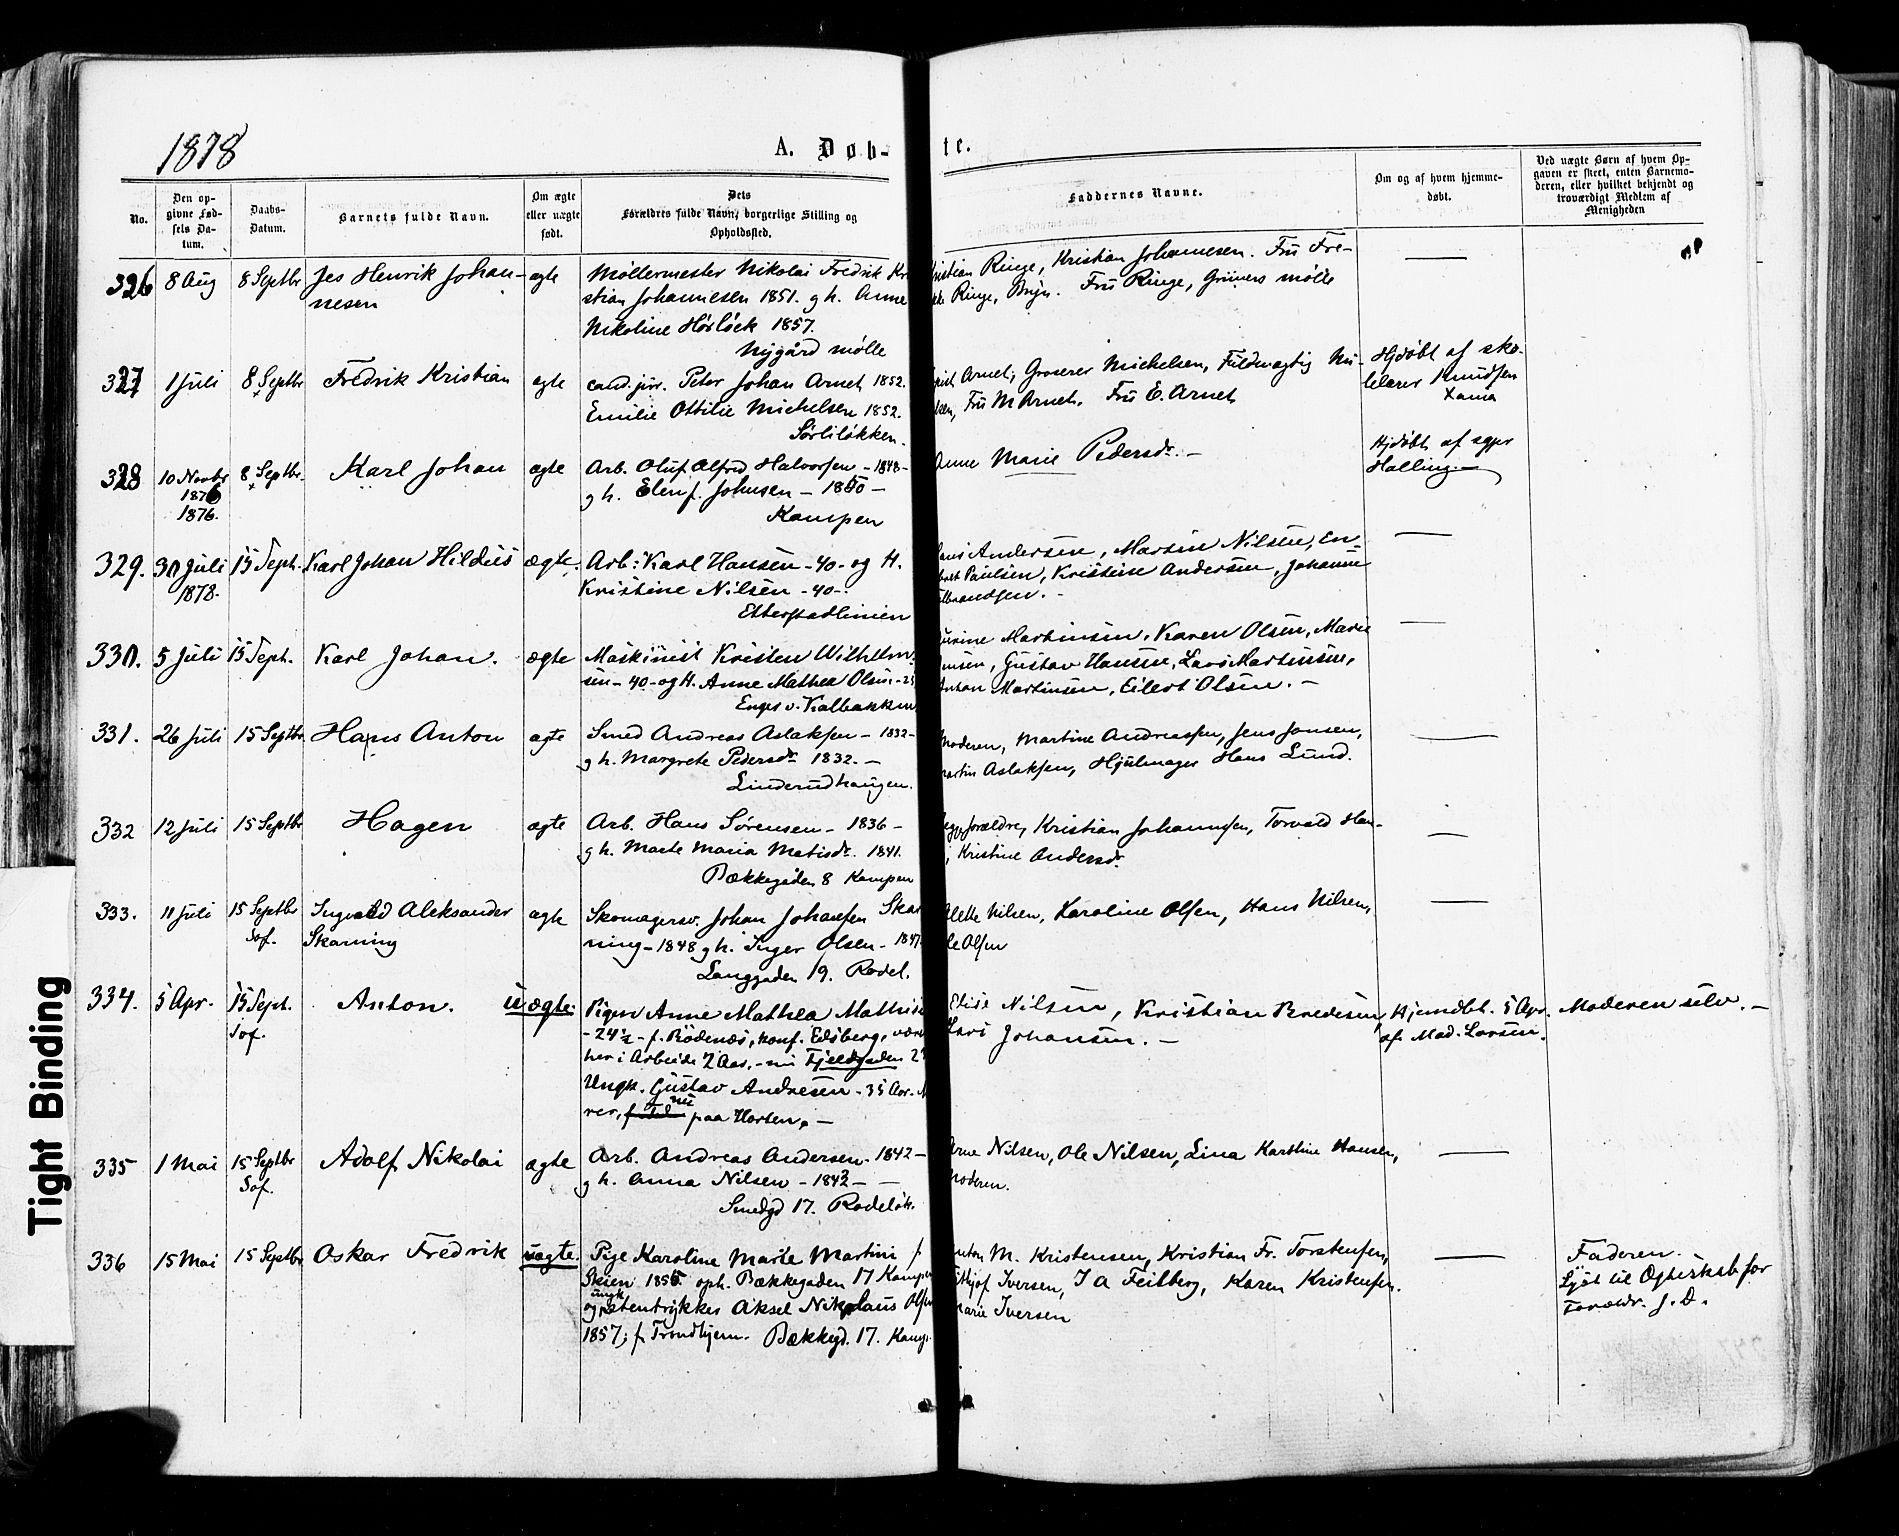 1878
A. Døb-
te.
No.
Den op-
givne Fød-
sels Da-
tum.
Daabs-
Datum.
Barnets fulde Navn.
Om ægte
eller uægte
født.
Dets
Forældres fulde Navn, borgerlige Stilling og
Opholdssted.
Faddernes Navne.
Om og af hvem hjemme-
døbt.
Ved uægte Børn af hvem Op-
gaven er skeet, enten Barnemo-
deren, eller hvilket bekjendt og
troværdigt Medlem af
Menigheden
326 8 Aug 8 Septbr Jes Henrik Johan-
nesen
ægte
Møllermester Nikolai Fredrik Kri
stian Johannesen 1851. g h. Anne
Nikoline Hørlöck 1857.
Nygård mølle
Kristian Ringe, Kristian Johannesen. Fru Fre-
Ringe, Bryn. Fru Ringe, Grüners mølle
—
327 1 Juli 8 Septbr Fredrik Kristian ægte
cand. jur. Peter Johan Arnet 1852.
Emilie Ottilie Michelsen 1852.
Sørliløkken.
Arnet, Groserer Michelsen, Fuldmægtig Mi-
elsen, Fru M Arnet. Fru E. Arnet
Hjdøbt af sko-
lelærer Knudsen
328 10 Novbr
1876
1876.
8 Septbr. Karl Johan ægte
Arb. Oluf Alfred Halvorsen – 1848 –
g h. Elen f. Johnsen – 1850 –
Kampen
Anne Marie Pedersdr. –
Hjdøbt af sgpr
Halling. —
329. 30 Juli
1878.
15 Sept. Karl Johan Hildus ægte.
Arb: Karl Hansen – 40 – og H.
Kristine Nilsen – 40 –.
Etterstadlinien
Andersen, Martin Nilsen, En-
Paulsen, Kristine Andersen, Johanne
—
330. 5 Juli 15 Sept. Karl Johan. ægte
Maskinist Kristen Wilhelm-
sen – 40 – og H. Anne Mathea Olsen –
Enges v. Kalbakken
Martinsen, Karen Olsen, Marie
Gustav Hansen, Lars Martinsen,
Anton Martinsen, Eilert Olsen. –
—
331. 26 Juli 15 Septbr. Hans Anton ægte
Smed Andreas Aslaksen – 1832 –
g h. Margrete Pedersdr. 1832. –
Linderudhaugen.
Moderen, Martine Andreassen, Jens Jonsen,
Martin Aslaksen, Hjulmager Hans Lund.
—
332 12 Juli 15 Septbr Hagen ægte
Arb. Hans Sørensen – 1836 –
g h. Marte Maria Matisdr. 1841.
Bækkegaden 8 Kampen
Begge forældre, Kristian Johannesen, Torvald Han-
Kristine Andersdr.
—
333. 11 Juli 15 Septbr
Sof.
Ingvald Aleksander
Skarning
ægte
Skomagersv. Johan Johansen Skar
ning – 1848 g h. Inger Olsen – 1847
Langgaden 19. Rodel.
Nilsen, Karoline Olsen, Hans Nilsen,
Ole Olsen
—
334. 5 Apr. 15 Sept.
Sof.
Anton. uægte.
Pigen Anne Mathea Mathise
– 24½ – f. Rödenæs, konf. Edsberg, været
her i Arbeide 2 Aar. – nu Fjeldgaden
Ungk. Gustav Andresen – 35 Aar.
nu
paa Horten. –
Elise Nilsen, Kristian Bredesen,
Lars Johansen. –
Hjemdbt. 5 Apr.
af Mad. Larsen.
Moderen selv. –
335 1 Mai 15 Septbr
Sof.
Adolf Nikolai ægte
Arb. Andreas Andersen – 1842 –
g h. Anna Nilsen – 1842 –
Smedgd 17. Rodeløk.
Arne Nilsen, Ole Nilsen, Lina Karoline Hansen,
Moderen.
—
336 15 Mai 15 Septbr Oskar Fredrik uægte.
Pige Karoline Marie Martini f
Skien 1855. oph. Bækkegaden 17 Kampen
ungk
og stentrykker Aksel Nikolaus Olsen
1857; f Trondhjem. Bækkegd. 17. Kamp.
Anton M. Kristensen, Kristian Fr. Torstensen,
Frithjof Iversen, J A Feilberg, Karen Kristensen.
Marie Iversen
—
Faderen.
Lyst til Ægteskab for
Foreldr. J. D.
Tight Binding